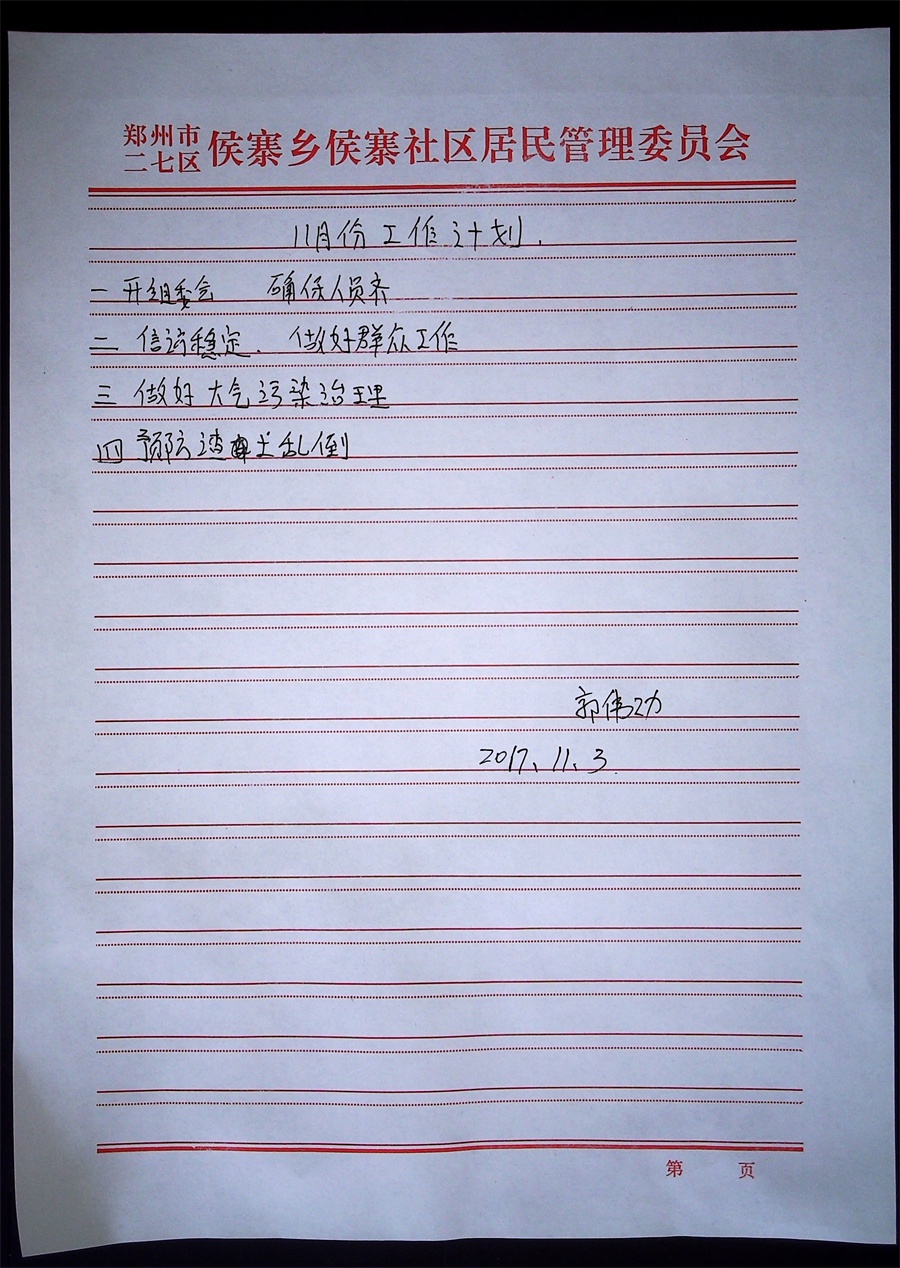 郑州市
二七区 侯寨乡侯寨社区居民管理委员会
11月份工作计划.
一 开组委会 确保人员齐
二 信访稳定. 做好群众工作
三 做好大气污染治理
四 预防渣土乱倒
郭伟功
2017、11、3
第 页